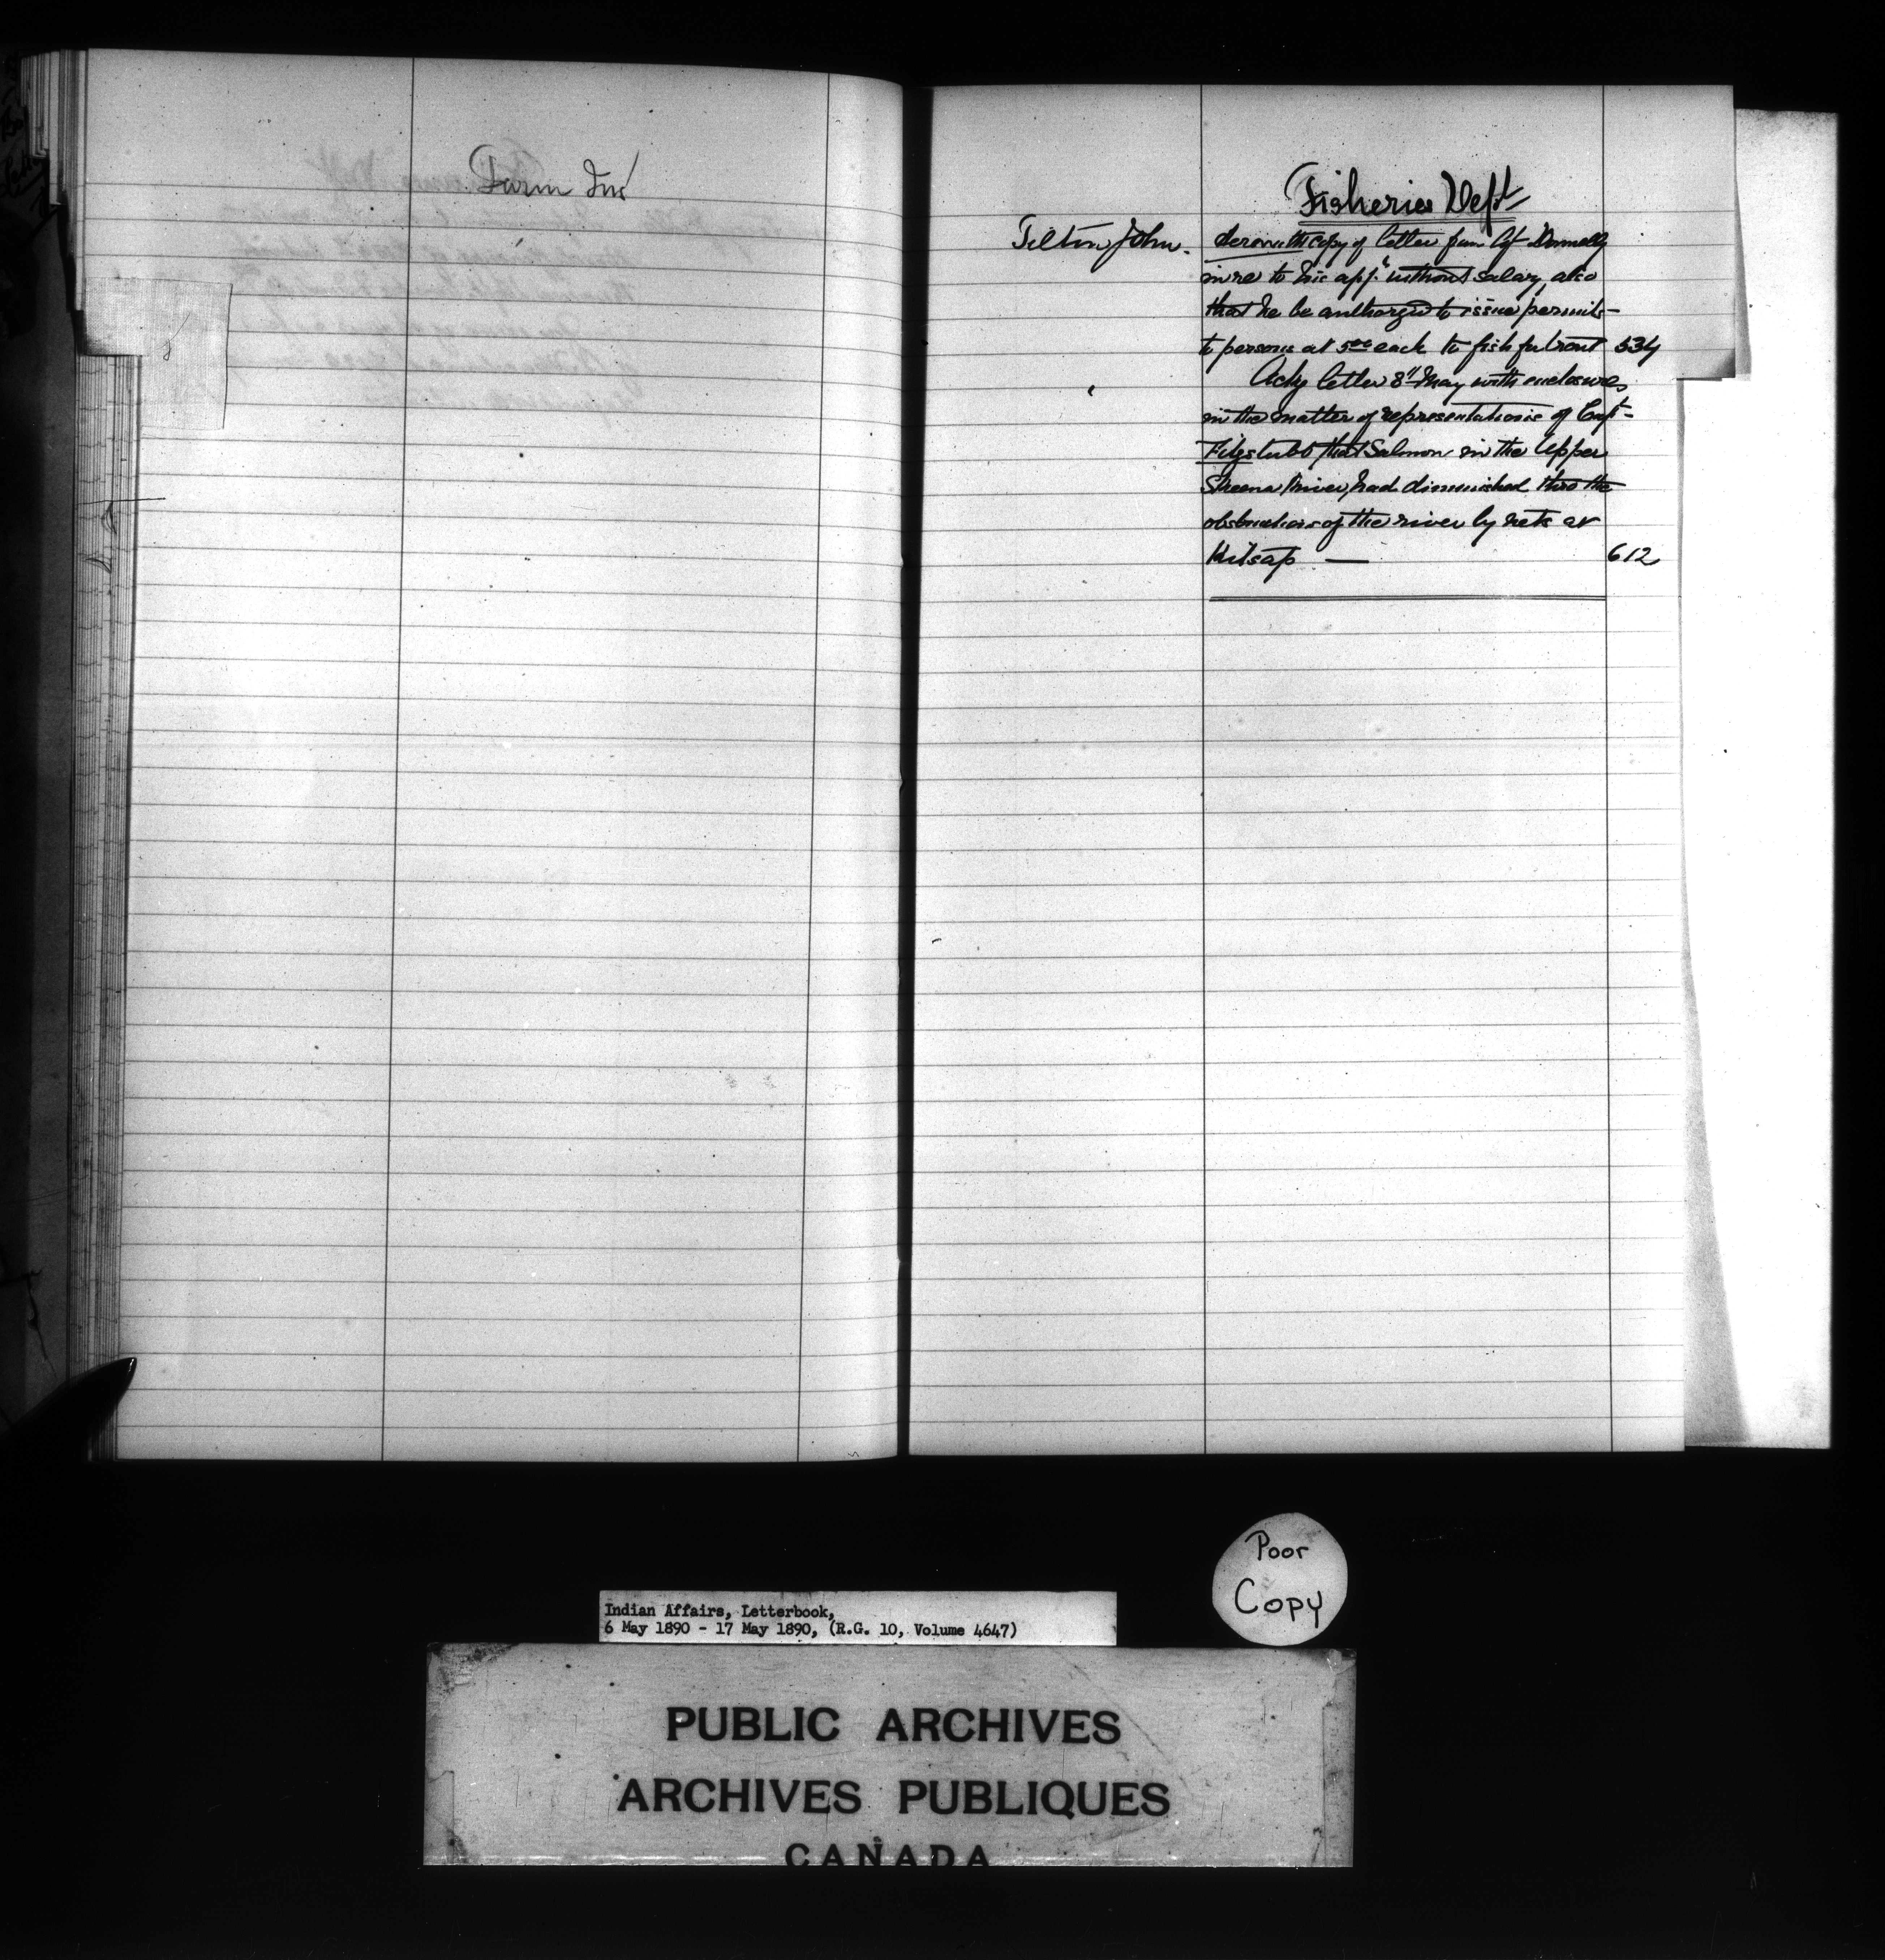 Farm Ins
Fisheries Dept
Tilton John.
copy of letter from Agt Donnelly
in re to his appt without salary, also
that he be authorized to issue permits
to persons at 5.00 each to fish for trout 534
Ackg letter 8th May with enclosures
in the matter of representations of Capt
Fitzstubbs that Salmon in the Upper
Skeena River had diminished thro the
obstructions of the river by nets at
Kitsap — 612
Poor
Copy
Indian Affairs, Letterbook,
6 May 1890 - 17 May 1890, (R.G. 10, Volume 4647)
PUBLIC ARCHIVES
ARCHIVES PUBLIQUES
CANADA